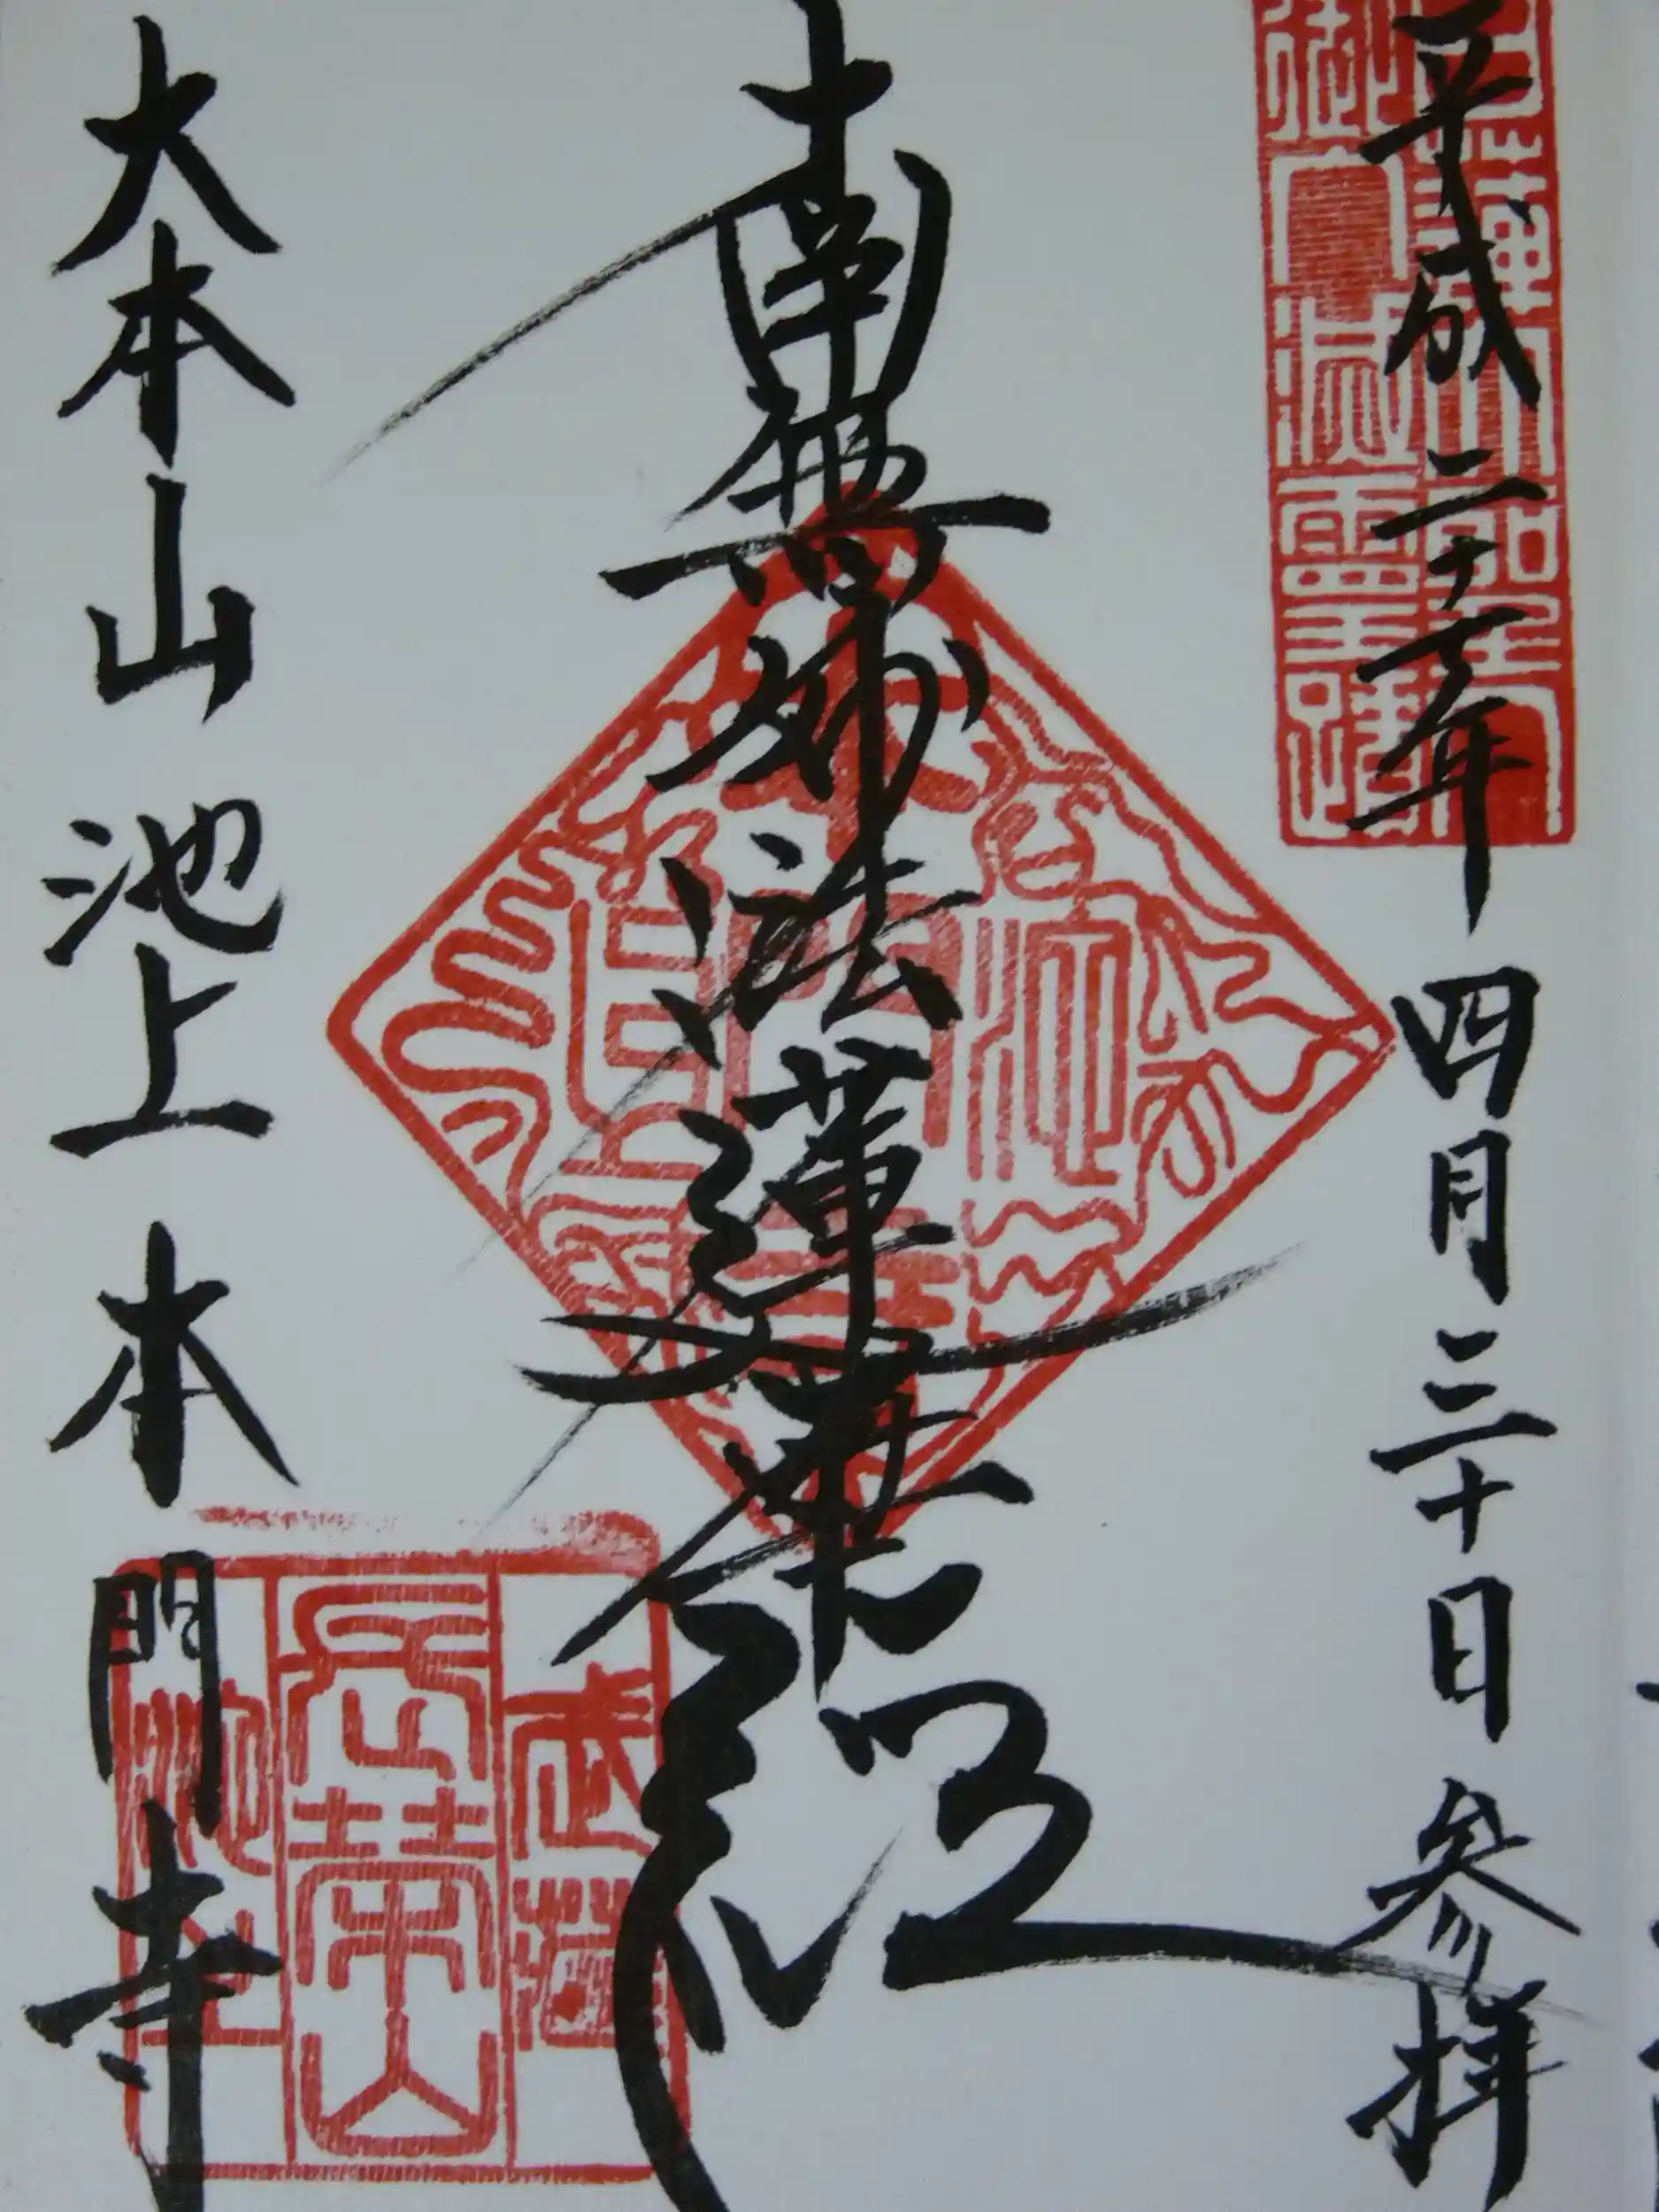 平成二十二年 四月 三十日 参拝
南無妙法蓮華経
大本山 池上 本門寺
武蔵
長榮山
池上